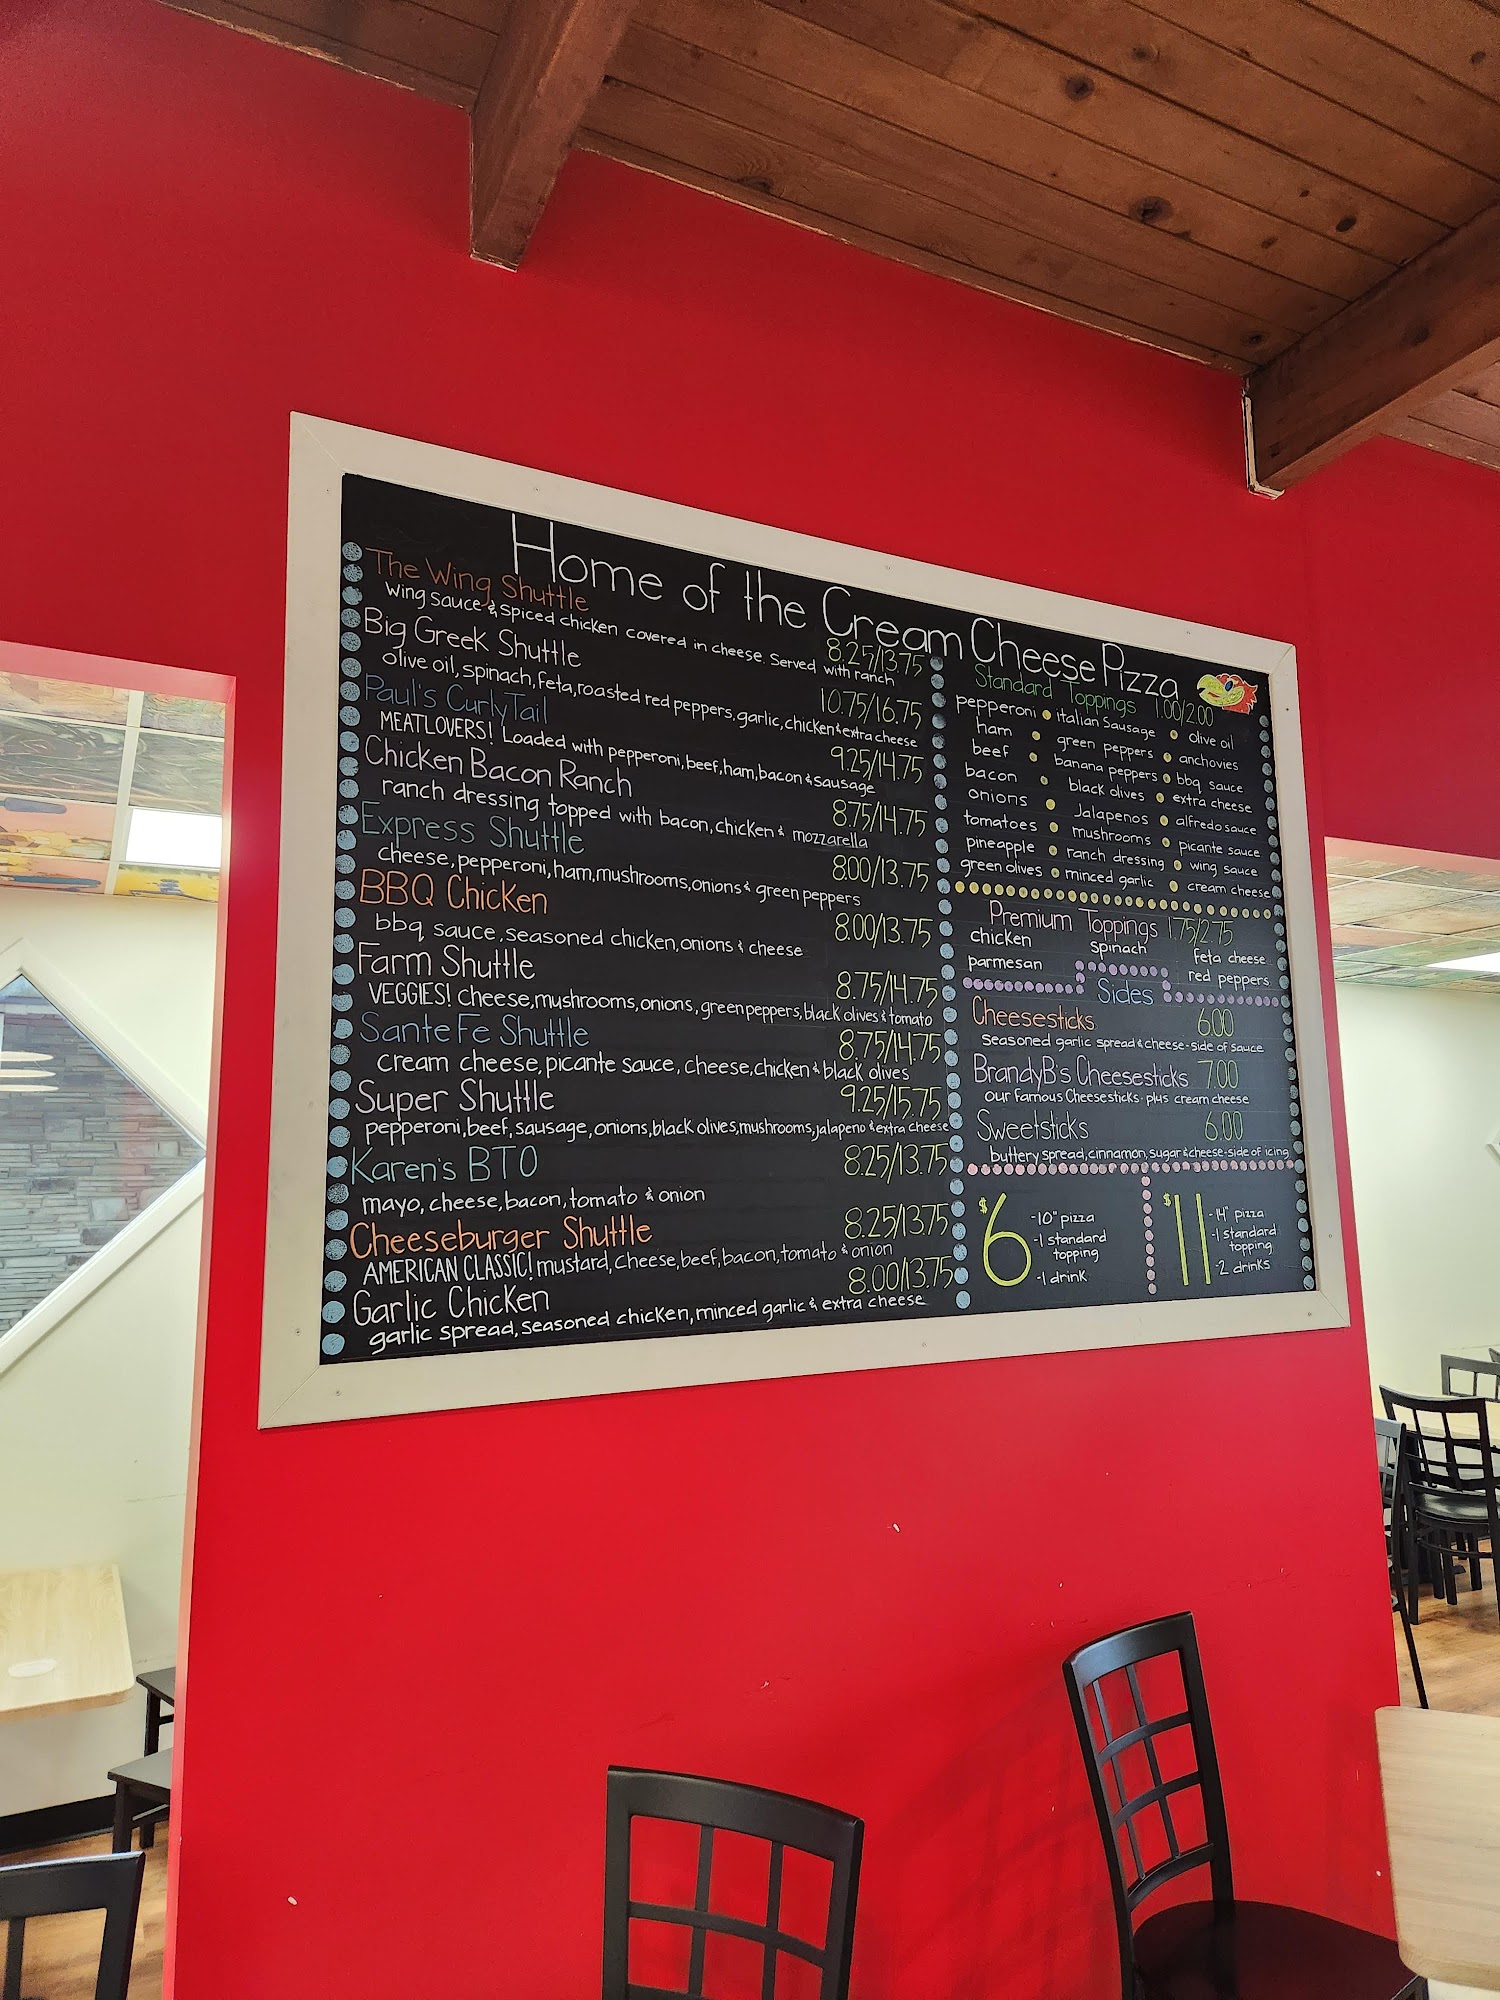 Home of the Cream Cheese Pizza
The Wing Shuttle 8.25/13.75
wing sauce & spiced chicken covered in cheese. Served with ranch
Big Greek Shuttle 10.75/16.75
olive oil, spinach, feta, roasted red peppers, garlic, chicken & extra cheese
Paul's CurlyTail 9.25/14.75
MEATLOVERS! Loaded with pepperoni, beef, ham, bacon & sausage
Chicken Bacon Ranch 8.75/14.75
ranch dressing topped with bacon, chicken & mozzarella
Express Shuttle 8.00/13.75
cheese, pepperoni, ham, mushrooms, onions & green peppers
BBQ Chicken 8.00/13.75
bbq sauce, seasoned chicken, onions & cheese
Farm Shuttle 8.75/14.75
VEGGIES! cheese, mushrooms, onions, green peppers, black olives & tomato
Sante Fe Shuttle 8.75/14.75
cream cheese, picante sauce, cheese, chicken & black olives
Super Shuttle 9.25/15.75
pepperoni, beef, sausage, onions, black olives, mushrooms, jalapeno & extra cheese
Karen's BTO 8.25/13.75
mayo, cheese, bacon, tomato & onion
Cheeseburger Shuttle 8.25/13.75
AMERICAN CLASSIC! mustard, cheese, beef, bacon, tomato & onion
Garlic Chicken 8.00/13.75
garlic spread, seasoned chicken, minced garlic & extra cheese
Standard Toppings 1.00/2.00
pepperoni • italian sausage • olive oil
ham • green peppers • anchovies
beef • banana peppers • bbq sauce
bacon • black olives • extra cheese
onions • Jalapenos • alfredo sauce
tomatoes • mushrooms • picante sauce
pineapple • ranch dressing • wing sauce
green olives • minced garlic • cream cheese
Premium Toppings 1.75/2.75
chicken spinach feta cheese
parmesan red peppers
Sides
Cheesesticks 6.00
seasoned garlic spread & cheese - side of sauce
BrandyB's Cheesesticks 7.00
our famous Cheesesticks - plus cream cheese
Sweetsticks 6.00
buttery spread, cinnamon, sugar & cheese - side of icing
$6
-10" pizza
-1 standard
topping
-1 drink
$11
-14" pizza
-1 standard
topping
-2 drinks